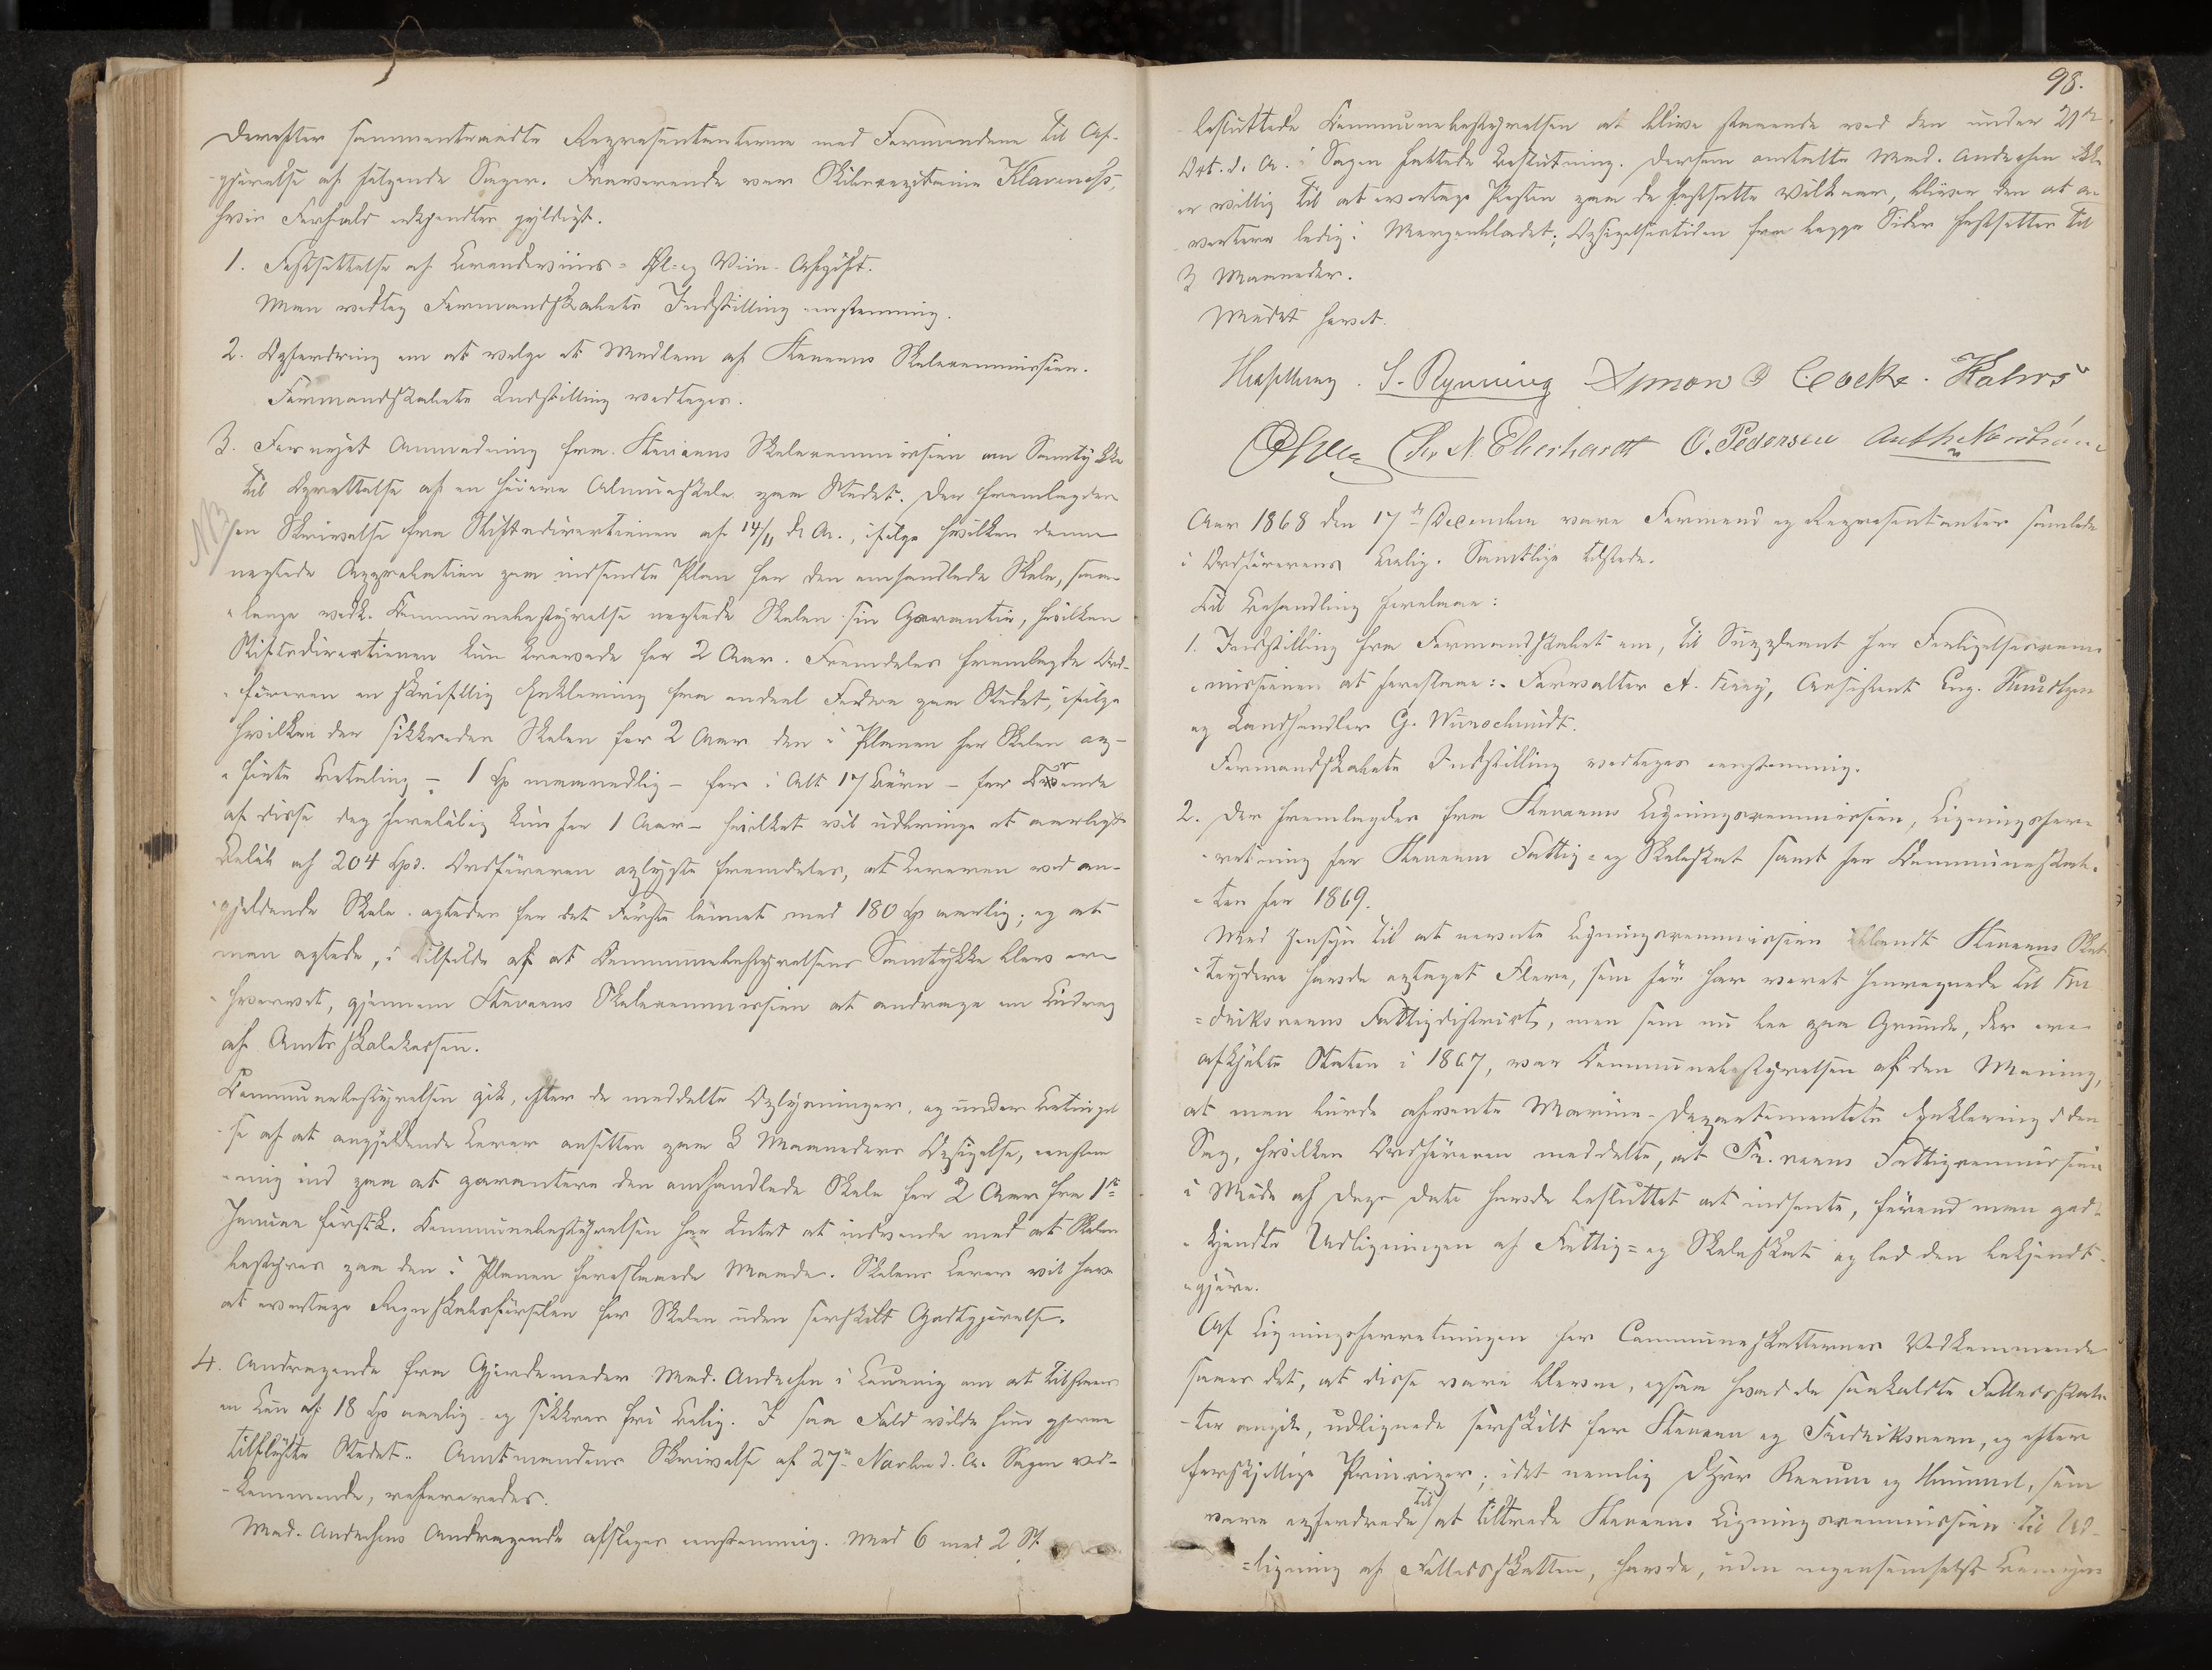 Derefter sammentraadte Repræsentanterne med Formændene til Af-
gjørelse af følgende Sager. Fraværende var Klavenæss,
hvis Forfald erkjendtes gyldigt.
1. Fastsættelse af Brændeviins- Øl- og Viin-Afgift.
Man vedtog Formandskabets Indstilling enstemmig.
2. Opfordring om at vælge et Medlem af Staværns Skolecommission.
Formandskabets Indstilling vedtoges.
3. Fornyet Anmodning fra Staværns Skolecommission om Samtykke
til Oprettelse af en høiere Almueskole paa Stedet. Der fremlagdes
NB/ en Skrivelse fra Stiftsdirectionen af 14/11 d. A., ifølge hvilken denne
negtede Approbation paa indsendte Plan for den omhandlede Skole, saa-
-længe vedk. Communebestyrelse negtede Skolen sin Garantie, hvilken
Stiftsdirectionen kun krævede for 2 Aar. Fremdeles fremlagde Ord-
-føreren en skriftlig Erklæring fra endeel Fædre paa Stedet, ifølge
hvilken der sikkredes Skolen for 2 Aar den i Planen for Skolen op-
-førte Betaling – 1 Spd maanedlig – for i Alt 17 Børn – for Enende
af disse dog foreløbig kun for 1 Aar – hvilket vil udbringe et aarligt
Beløb af 204 Spd. Ordføreren oplyste fremdeles, at Læreren ved an-
-gjeldende Skole agtedes for det Første lønnet med 180 Spd aarlig; og at
man agtede, i Tilfælde af at Communebestyrelsens Samtykke blev er-
-hvervet, gjennem Staværns Skolecommission at andrage om Bidrag
af Amtsskolekassen.
Communebestyrelsen gik, efter de meddelte Oplysninger, og under Betingel-
-se af at angjeldende Lærer ansættes paa 3 Maaneders Opsigelse, enstem-
-mig ind paa at garantere den omhandlede Skole for 2 Aar fra 1ste
Januar førstk. Communebestyrelsen har Intet at indvende mod at Skolen
bestyres paa den i Planen foreslaaede Maade. Skolens Lærer vil have
at overtage Regnskabsførselen for Skolen uden særskilt Godtgjørelse.
4. Andragende fra Gjordemoder Mad. Andersen i Laurvig om at tilstaaes
en Løn af 18 Spd aarlig og sikkres fri Bolig. I saa Fald vilde hun gjerne
tilflytte Stedet. Amtmandens Skrivelse af 27de Novbr d. A. Sagen ved-
-kommende, refereredes.
Mad. Andersens Andragende afsloges enstemmig. Med 6 mod 2 St.
98.
besluttede Communebestyrelsen at blive staaende ved den under 29de
Oct. d. A. i Sagen fattede Beslutning. Dersom antalte Mad. Andersen ikke
er villig til at overtage Posten paa de fastsatte Vilkaar, bliver den at a-
vertere ledig i Morgenbladet; Opsigelsestiden fra begge Sider fastsættes til
3 Maaneder.
Mødet hævet.
S. Rynning Simon Coeke. Kahrs
Olsen Chr. N. Eberhardt O. Pedersen
Aar 1868 den 17de December vare Formænd og Repræsentanter samlede
i Ordførerens Bolig. Samtlige tilstede.
Til Behandling forelaae:
1. Indstilling fra Formandskabet om, til Suppleant for Forligelsescom-
-missionen at foreslaae: Forvalter A. Terey, Assistent Eug. Knudtzen
og Landhandler G. Wunschmidt.
Formandskabets Indstilling vedtoges enstemmig.
2. Der fremlagdes fra Staværns Ligningscommission, Ligningsfor-
-retning for Staværn Fattig- og Skoleskat samt for Communeskat-
-ten for 1869.
Med Hensyn til at nævnte Ligningscommission iblandt Staværns Skat-
-teydere havde optaget Flere, som før har været henregnede til Fre-
=driksværns Fattigdistrict, men som nu boe paa Grunde, der ere
afkjøbte Staten i 1867, var Communebestyrelsen af den Mening,
at man burde afvente Marine-Departementets Erklæring i den
Sag, hvilken Ordføreren meddelte, at Fr.værns Fattigcommission
i Møde af Dags Dato havde besluttet at indhente, førend man god-
-kjendte Udligningen af Fattig- og Skoleskat og lod den bekjendt-
-gjøre.
Af Ligningsforretningen for Communeskatternes Vedkommende
saaes det, at disse vare blevne, ogsaa hvad de saakaldte Fællesskat-
-ter angik, udlignede særskilt for Staværn og Fredriksværn, og efter
forskjellige Principer; idet nemlig DHrr Raeum og Hummel, som
vare opfordrede til at tiltræde Staværns Ligningscommission til Ud-
=ligning af Fællesskatten, havde, uden nogensomhelst